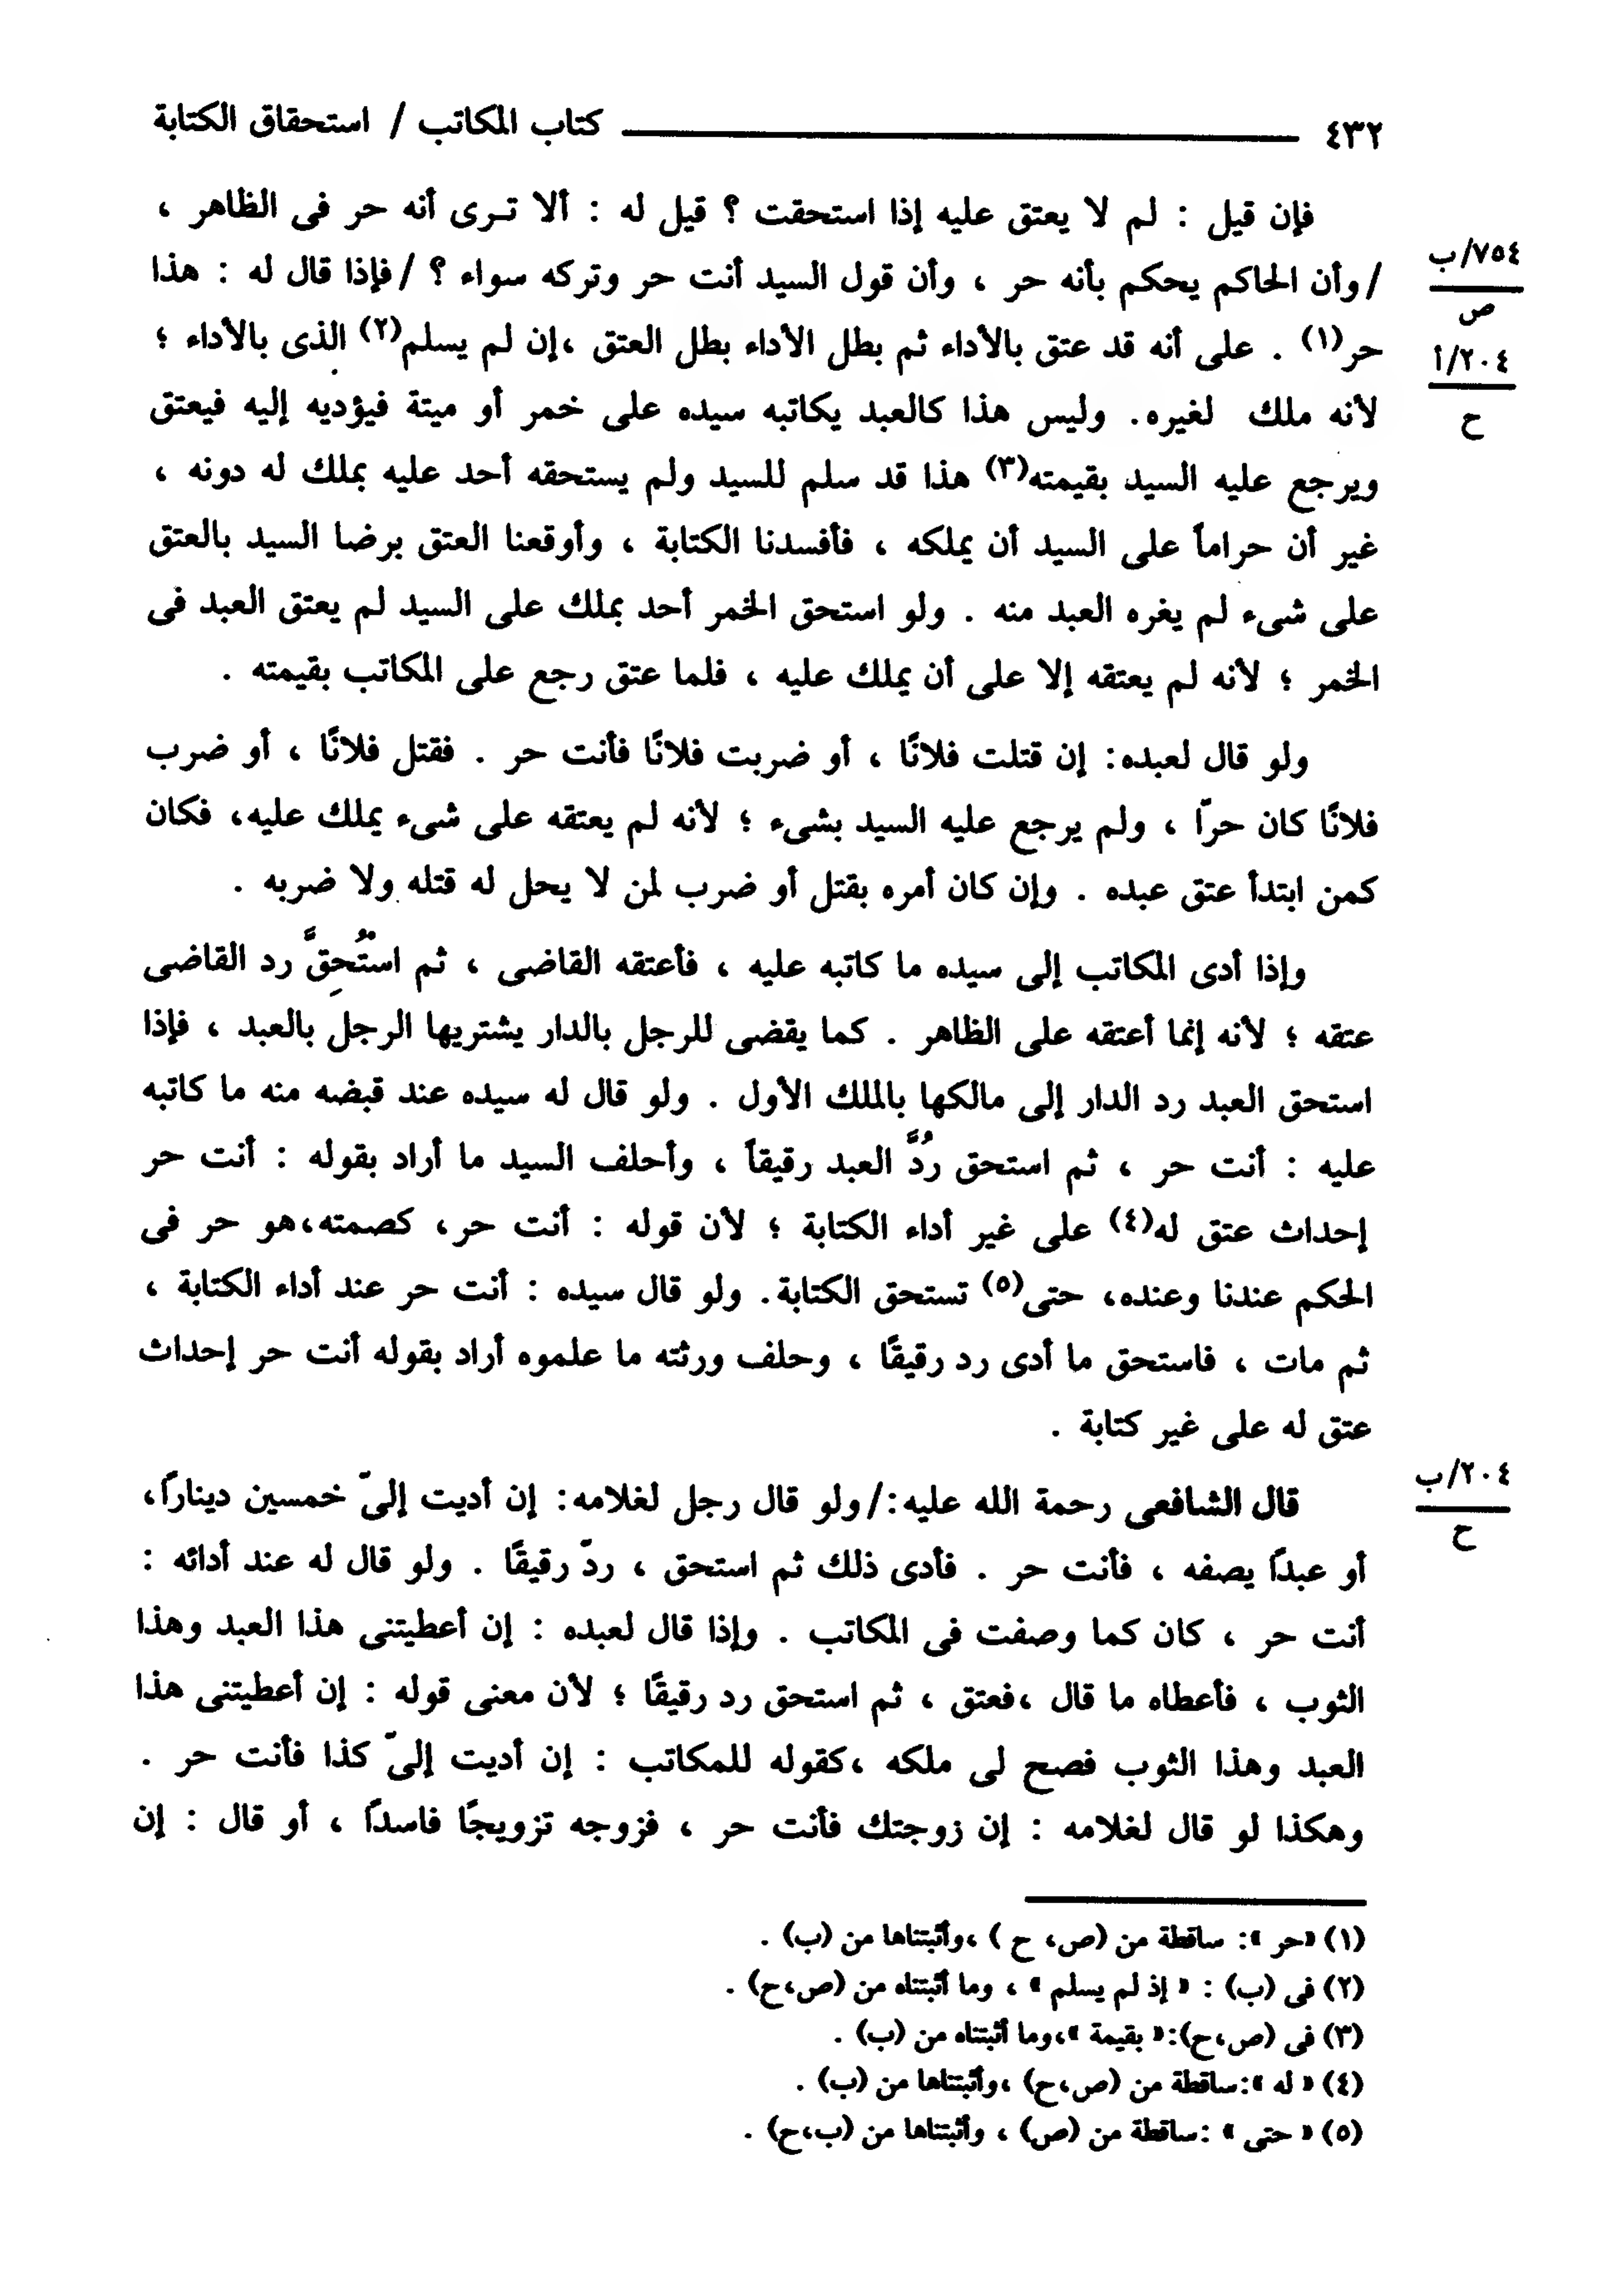 ٤٣٢ ــــــــــــــــــــ كتاب المكاتب / استحقاق الكتابة
فإن قيل : لم لا يعتق عليه إذا استحقت ؟ قيل له : ألا تـرى أنه حر فى الظاهر ،
/ وأن الحاكم يحكم بأنه حر ، وأن قول السيد أنت حر وتركه سواء ؟ / فإذا قال له : هذا
٧٥٤/ب
ص
حر(١) . على أنه قد عتق بالأداء ثم بطل الأداء بطل العتق ،إن لم يسلم(٢) الذى بالأداء ؛
٢٠٤/أ
ح
لأنه ملك لغيره. وليس هذا كالعبد يكاتبه سيده على خمر أو ميتة فيؤديه إليه فيعتق
ويرجع عليه السيد بقيمته(٣) هذا قد سلم للسيد ولم يستحقه أحد عليه بملك له دونه ،
غير أن حراماً على السيد أن يملكه ، فأفسدنا الكتابة ، وأوقعنا العتق برضا السيد بالعتق
على شىء لم يغره العبد منه . ولو استحق الخمر أحد بملك على السيد لم يعتق العبد فى
الخمر ؛ لأنه لم يعتقه إلا على أن يملك عليه ، فلما عتق رجع على المكاتب بقيمته .
ولو قال لعبده: إن قتلت فلانًا ، أو ضربت فلانًا فأنت حر . فقتل فلانًا ، أو ضرب
فلانًا كان حراً ، ولم يرجع عليه السيد بشىء ؛ لأنه لم يعتقه على شىء يملك عليه، فكان
كمن ابتدأ عتق عبده . وإن كان أمره بقتل أو ضرب لمن لا يحل له قتله ولا ضربه .
وإذا أدى المكاتب إلى سيده ما كاتبه عليه ، فأعتقه القاضى ، ثم استُحِقَّ رد القاضى
عتقه ؛ لأنه إنما أعتقه على الظاهر . كما يقضى للرجل بالدار يشتريها الرجل بالعبد ، فإذا
استحق العبد رد الدار إلى مالكها بالملك الأول . ولو قال له سيده عند قبضه منه ما كاتبه
عليه : أنت حر ، ثم استحق رُدَّ العبد رقيقاً ، وأحلف السيد ما أراد بقوله : أنت حر
إحداث عتق له(٤) على غير أداء الكتابة ؛ لأن قوله : أنت حر، كصمته،هو حر فى
الحكم عندنا وعنده، حتى(٥) تستحق الكتابة. ولو قال سيده : أنت حر عند أداء الكتابة ،
ثم مات ، فاستحق ما أدى رد رقيقًا ، وحلف ورثته ما علموه أراد بقوله أنت حر إحداث
عتق له على غير كتابة .
قال الشافعى رحمة الله عليه:/ولو قال رجل لغلامه: إن أديت إلىّ خمسين ديناراً،
٢٠٤/ب
ح
أو عبداً يصفه ، فأنت حر . فأدى ذلك ثم استحق ، ردّ رقيقًا . ولو قال له عند أدائه :
أنت حر ، كان كما وصفت فى المكاتب . وإذا قال لعبده : إن أعطيتنى هذا العبد وهذا
الثوب ، فأعطاه ما قال ،فعتق ، ثم استحق رد رقيقًا ؛ لأن معنى قوله : إن أعطيتنى هذا
العبد وهذا الثوب فصح لى ملكه ،كقوله للمكاتب : إن أديت إلىّ كذا فأنت حر .
وهكذا لو قال لغلامه : إن زوجتك فأنت حر ، فزوجه تزويجًا فاسداً ، أو قال : إن
(١) «حر »: ساقطة من (ص، ح ) ،وأثبتناها من (ب) .
(٢) فى (ب) : « إذ لم يسلم » ، وما أثبتناه من (ص،ح) .
(٣) فى (ص،ح):« بقيمة »،وما أثبتناه من (ب) .
(٤) « له »:ساقطة من (ص،ح) ،وأثبتناها من (ب) .
(٥) « حتى » :ساقطة من (ص) ، وأثبتناها من (ب،ح) .